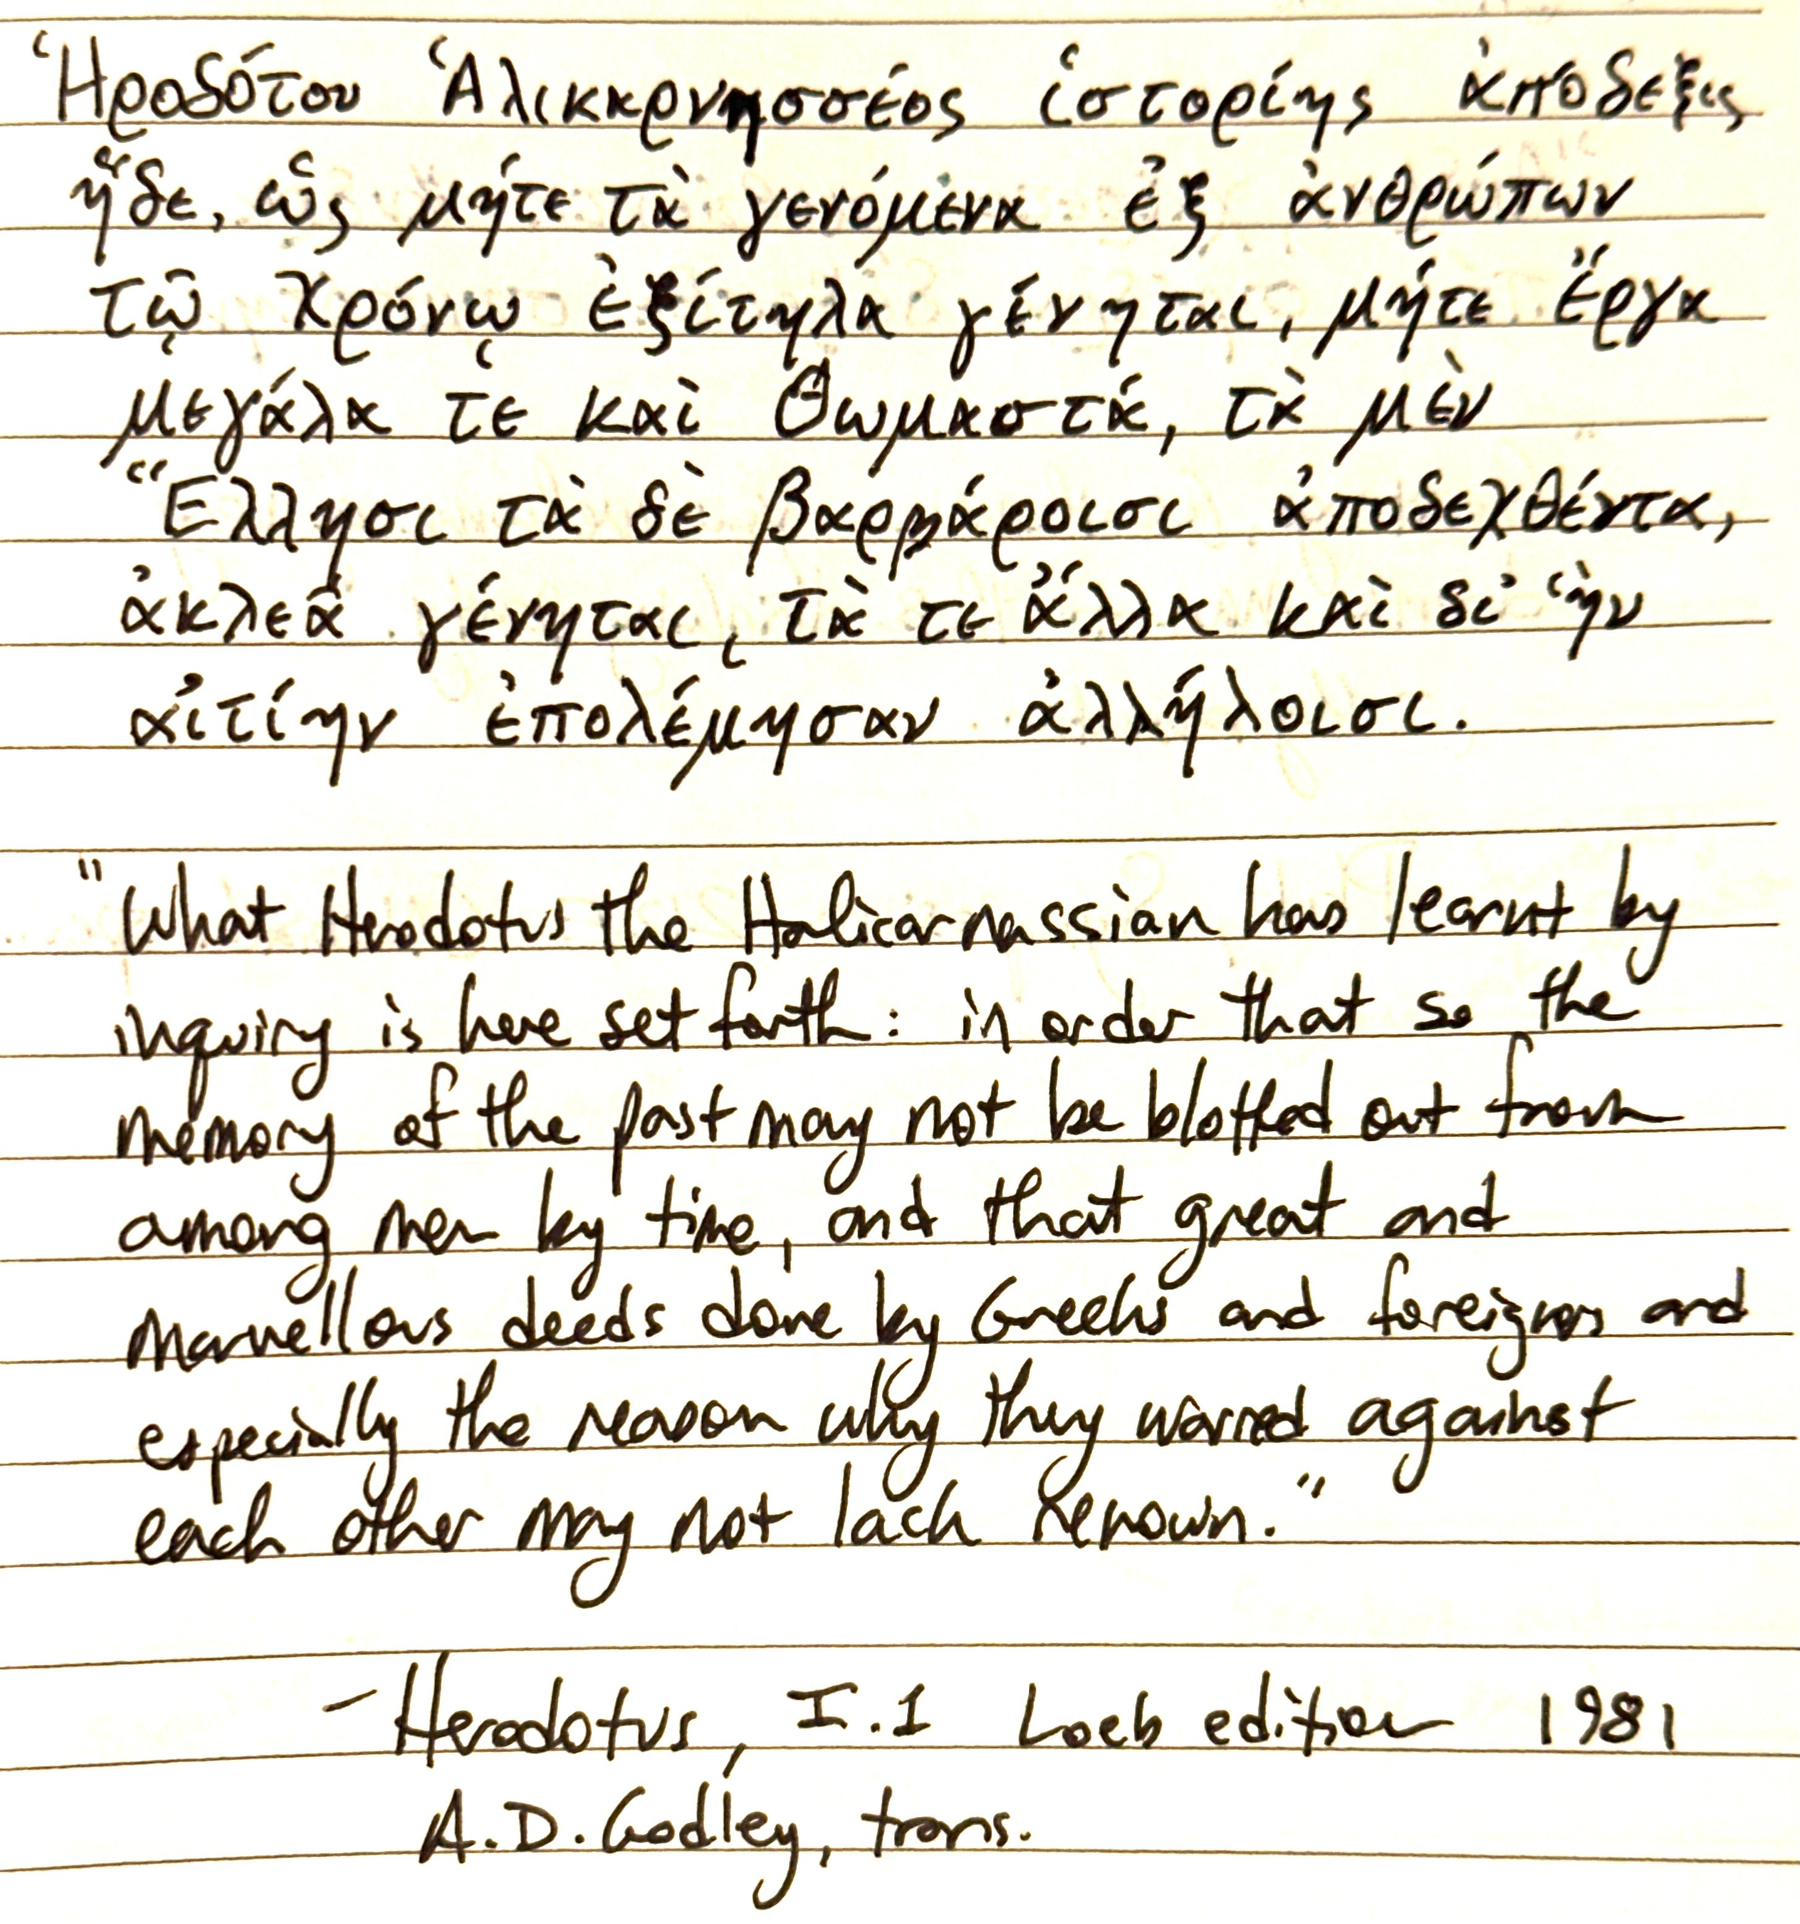 Ἡροδότου Ἁλικαρνησσέος ἱστορίης ἀπόδεξις
ἥδε, ὡς μήτε τὰ γενόμενα ἐξ ἀνθρώπων
τῷ χρόνῳ ἐξίτηλα γένηται, μήτε ἔργα
μεγάλα τε καὶ θωμαστά, τὰ μὲν
Ἕλλησι τὰ δὲ βαρβάροισι ἀποδεχθέντα,
ἀκλεᾶ γένηται, τὰ τε ἄλλα καὶ δι' ἣν
αἰτίην ἐπολέμησαν ἀλλήλοισι.
"What Herodotus the Halicarnassian has learnt by
inquiry is here set forth: in order that so the
memory of the past may not be blotted out from
among men by time, and that great and
marvellous deeds done by Greeks and foreigners and
especially the reason why they warred against
each other may not lack renown."
- Herodotus, I.1 Loeb edition 1981
A.D. Godley, trans.